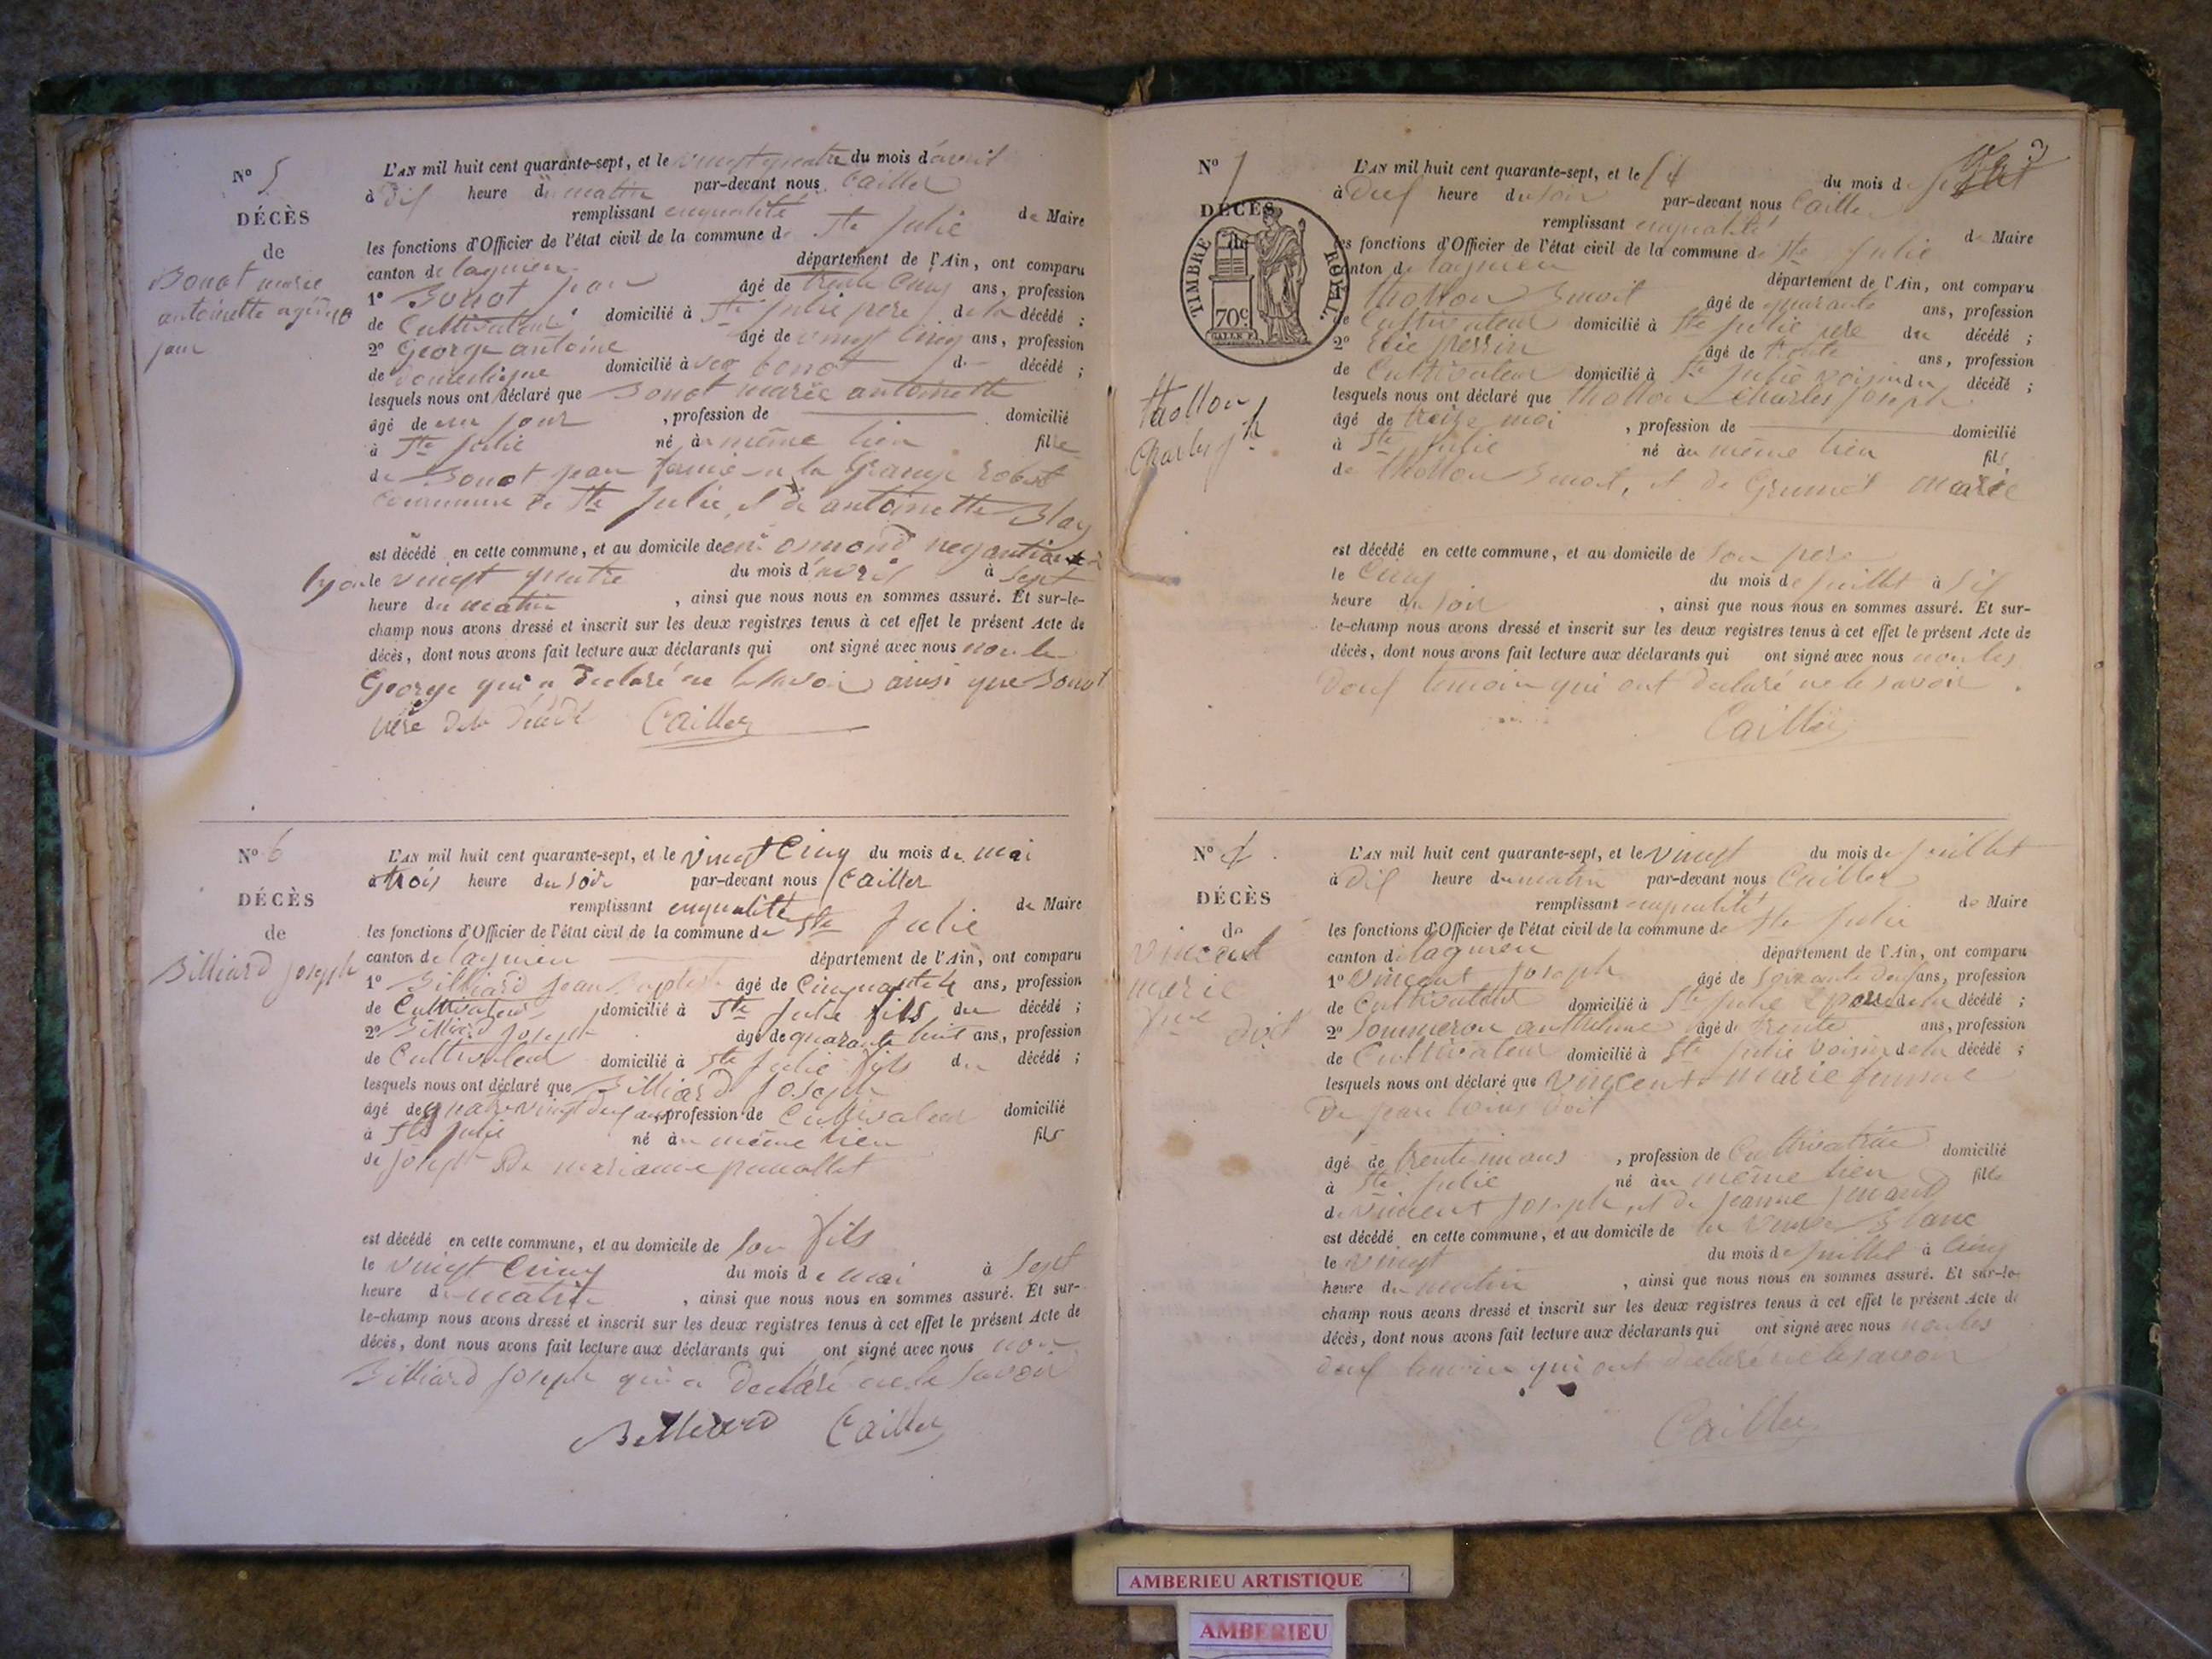 N° 5
DÉCÈS
de
Bonot marie
antoinette agée
jour
L'AN mil huit cent quarante-sept, et le vingt quatre du mois d'avril
à dix heure du matin par-devant nous Cailler
remplissant enqualité de Maire
les fonctions d'Officier de l'état civil de la commune de Ste Julie
canton de lagnieu département de l'Ain, ont comparu
1° Bonot jean âgé de trente cinq ans, profession
de Cultivateur domicilié à Ste Julie pere de la décédé ;
2° George antoine âgé de vingt cinq ans, profession
de domestique domicilié à bonot d décédé ;
lesquels nous ont déclaré que Bonot marie antoinette
âgé de un jour , profession de domicilié
à Ste Julie né au même lieu fille
de Bonot jean fermié a la Grange robert
commune de Ste Julie, et de antoinette Blay
est décédé en cette commune, et au domicile de osmond negantian a
lyon le vingt quatre du mois d'avril à sept
heure du matin , ainsi que nous nous en sommes assuré. Et sur-le-
champ nous avons dressé et inscrit sur les deux registres tenus à cet effet le présent Acte de
décès, dont nous avons fait lecture aux déclarants qui ont signé avec nous non le
George qui a declaré ne le savoir ainsi que Bonot
père de la décédé Cailler
N° 6
DÉCÈS
de
Billiard joseph
L'AN mil huit cent quarante-sept, et le vingt Cinq du mois de mai
à trois heure du soir par-devant nous Cailler
remplissant enqualité de Maire
les fonctions d'Officier de l'état civil de la commune de Ste Julie
canton de lagnieu département de l'Ain, ont comparu
1° Billiard Jean Baptiste âgé de Cinquante ans, profession
de Cultivateur domicilié à Ste Julie fils du décédé ;
2° Billiard Joseph âgé de quarante huit ans, profession
de Cultivateur domicilié à Ste Julie fils du décédé ;
lesquels nous ont déclaré que Billiard Joseph
âgé de quatre vingt deux ans, profession de Cultivateur domicilié
à Ste Julie né au même lieu fils
de Joseph & De marianne
est décédé en cette commune, et au domicile de son fils
le vingt Cinq du mois de mai à sept
heure du matin , ainsi que nous nous en sommes assuré. Et sur-
le-champ nous avons dressé et inscrit sur les deux registres tenus à cet effet le présent Acte de
décès, dont nous avons fait lecture aux déclarants qui ont signé avec nous non
Billiard Joseph qui a declaré ne le savoir
Billiard Cailler
N° 7
DÉCÈS
de
TIMBRE ROYAL.
70c
thollon
Charles jh
L'AN mil huit cent quarante-sept, et le du mois de
à deux heure du soir par-devant nous Cailler
remplissant enqualité de Maire
les fonctions d'Officier de l'état civil de la commune de Ste Julie
canton de lagnieu département de l'Ain, ont comparu
thollon Benoit âgé de quarante ans, profession
de Cultivateur domicilié à Ste Julie pere du décédé ;
2° Elie perrin âgé de trente ans, profession
de Cultivateur domicilié à Ste Julie voisin du décédé ;
lesquels nous ont déclaré que thollon Charles joseph
âgé de treize moi , profession de domicilié
à Ste Julie né au même lieu fils
de thollon Benoit, et de Grumet marie
est décédé en cette commune, et au domicile de son pere
le Cinq du mois de juillet à six
heure du soir , ainsi que nous nous en sommes assuré. Et sur-
le-champ nous avons dressé et inscrit sur les deux registres tenus à cet effet le présent Acte de
décès, dont nous avons fait lecture aux déclarants qui ont signé avec nous non les
deux temoin qui ont declaré ne le savoir .
Cailler
N°
DÉCÈS
de
vincent
marie
fme doit
L'AN mil huit cent quarante-sept, et le vingt du mois de juillet
à dix heure du matin par-devant nous Cailler
remplissant enqualité de Maire
les fonctions d'Officier de l'état civil de la commune de Ste Julie
canton de lagnieu département de l'Ain, ont comparu
1° vincent joseph âgé de soixante deux ans, profession
de Cultivateur domicilié à Ste Julie de la décédé ;
2° Sommeron anthelme âgé de trente ans, profession
de Cultivateur domicilié à Ste Julie voisin de la décédé ;
lesquels nous ont déclaré que vincent marie femme
de jean louis doit
âgé de trente ans , profession de Cultivatrice domicilié
à Ste Julie né au même lieu fille
de vincent joseph, et de jeanne
est décédé en cette commune, et au domicile de la veuve Blanc
le vingt du mois de juillet à Cinq
heure du matin , ainsi que nous nous en sommes assuré. Et sur-le-
champ nous avons dressé et inscrit sur les deux registres tenus à cet effet le présent Acte de
décès, dont nous avons fait lecture aux déclarants qui ont signé avec nous non les
deux temoin qui ont declaré ne le savoir
Cailler
AMBERIEU ARTISTIQUE
AMBERIEU